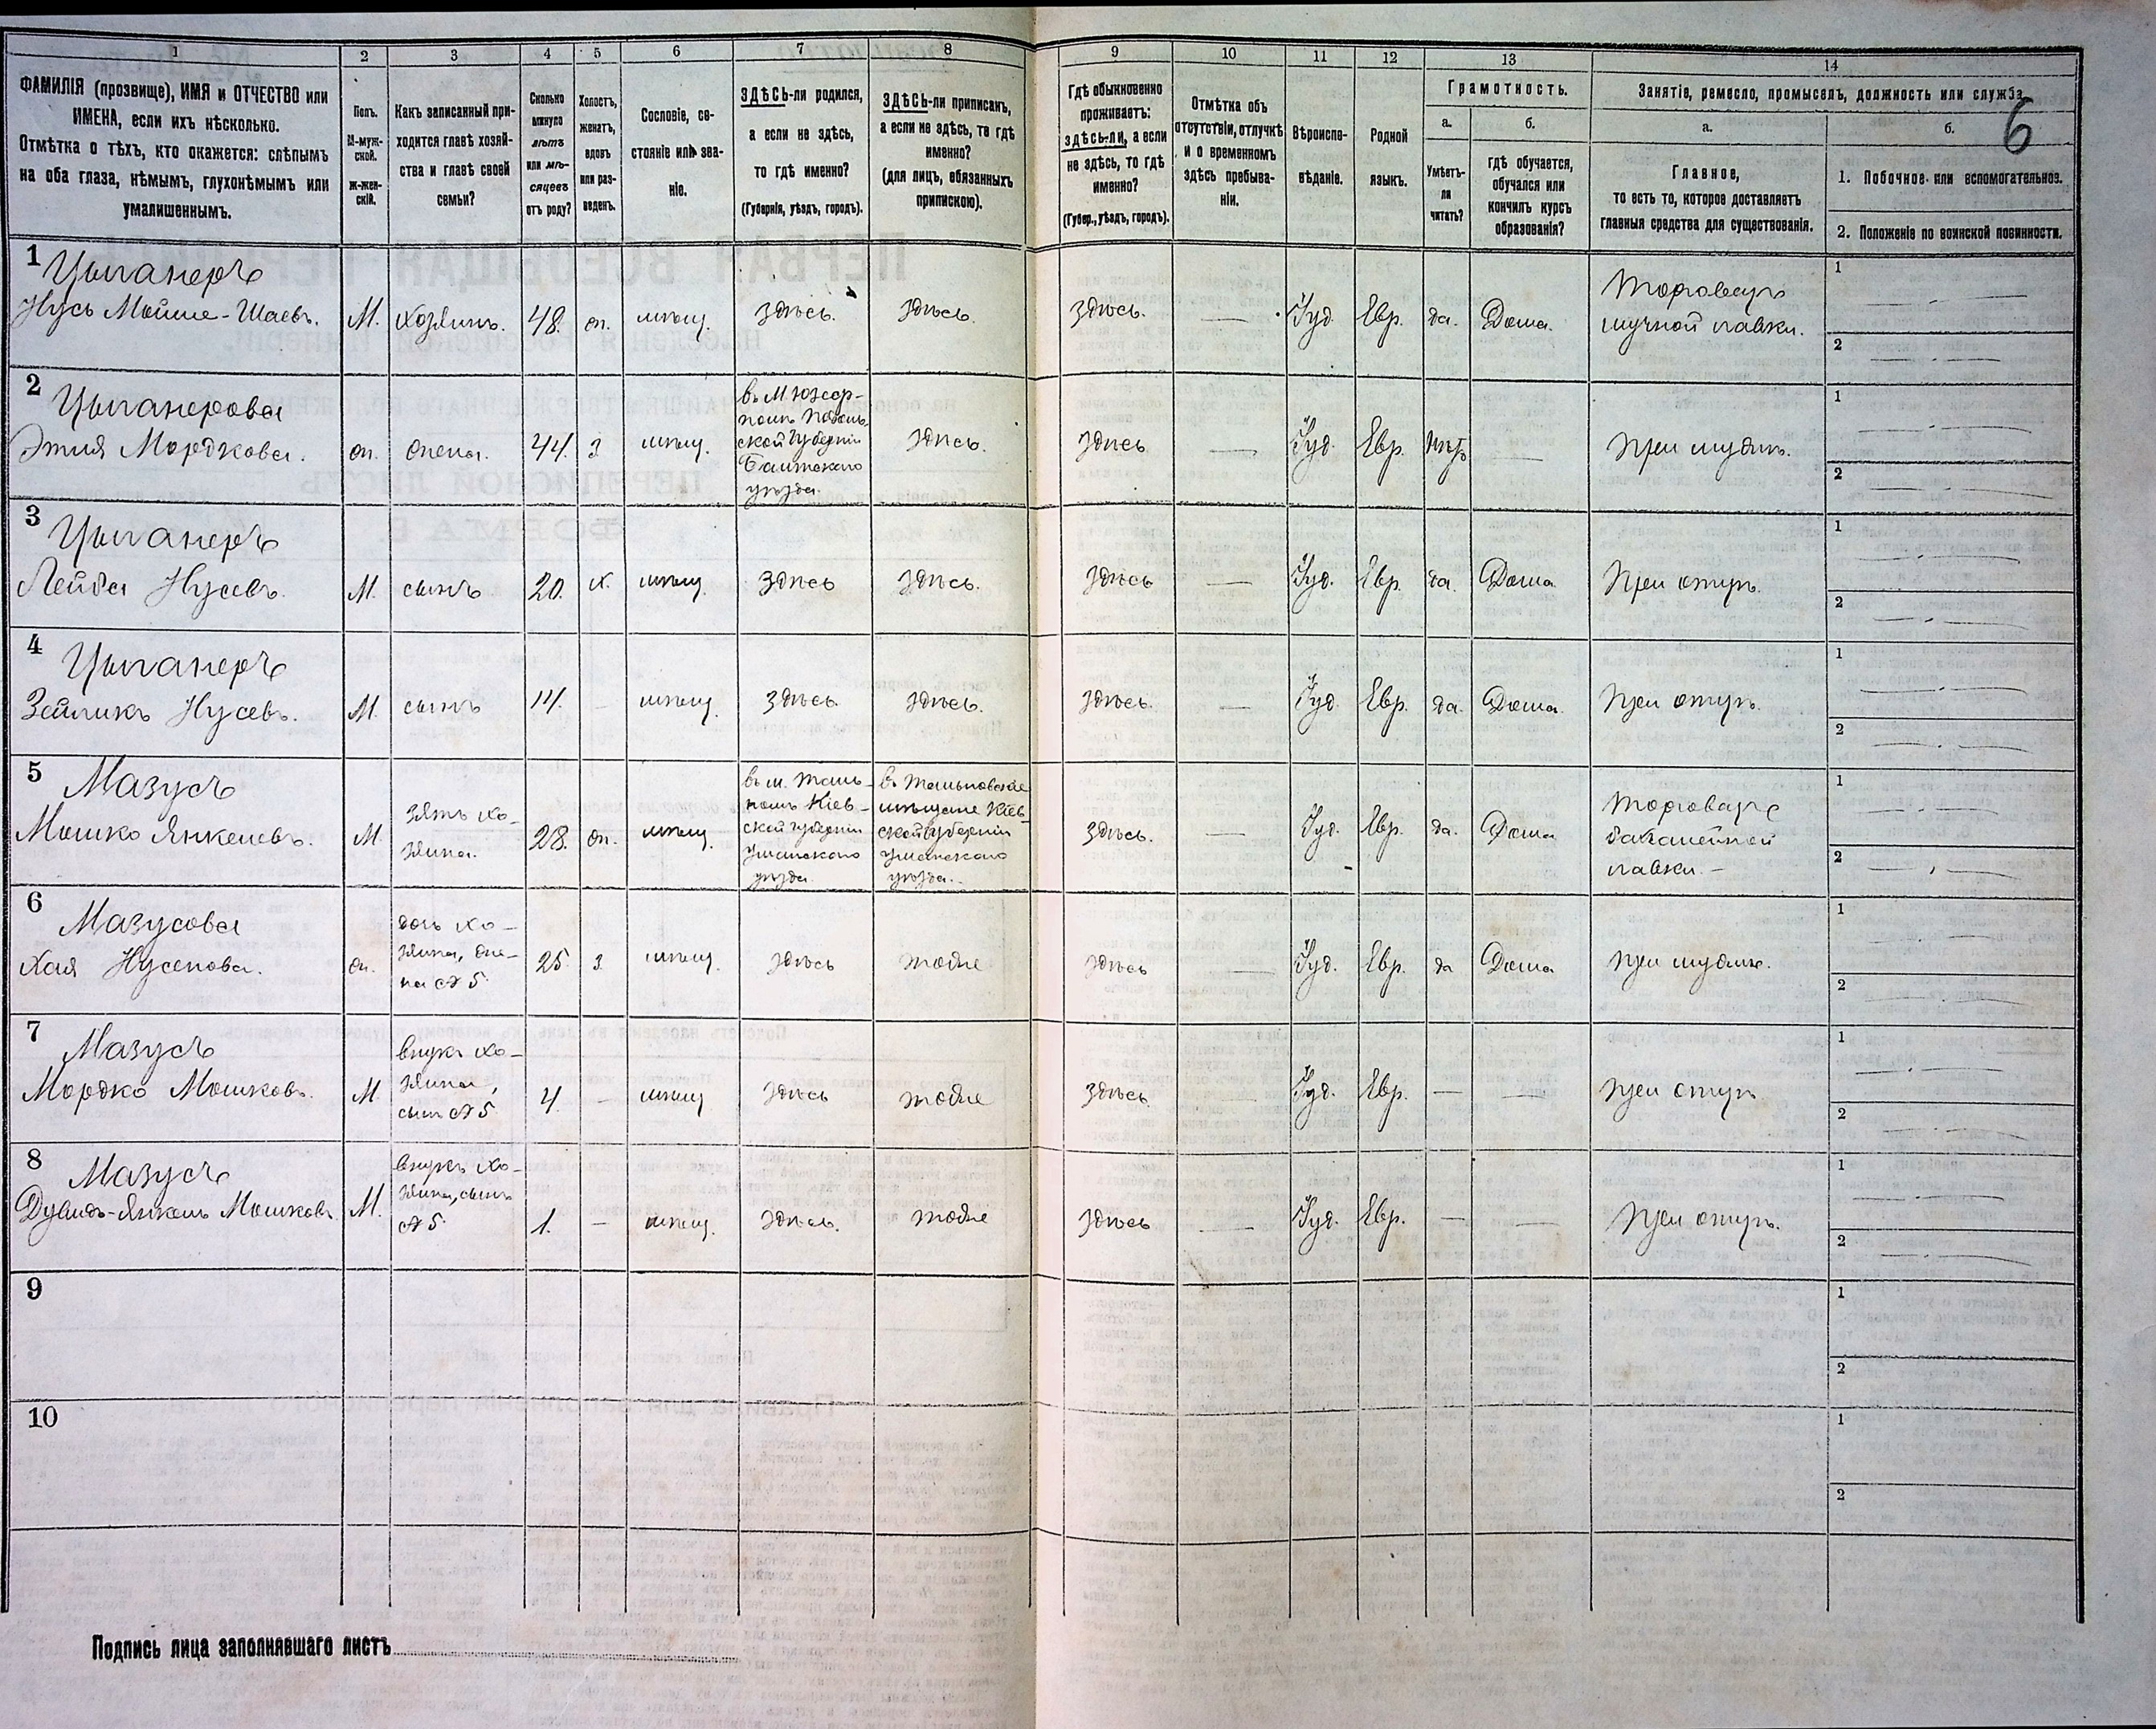 1 2 3 4 5 6 7 8 9 10 11 12 13 14
ФАМИЛІЯ (прозвище), ИМЯ и ОТЧЕСТВО или
ИМЕНА, если ихъ нѣсколько.
Отмѣтка о тѣхъ, кто окажется: слѣпымъ
на оба глаза, нѣмымъ, глухонѣмымъ или
умалишеннымъ.
Полъ.
М-муж-
ской.
Ж-жен-
скій.
Какъ записанный при-
ходится главѣ хозяй-
ства и главѣ своей
семьи?
Сколько
минуло
лѣтъ
или мѣ-
сяцевъ
отъ роду?
Холостъ,
женатъ,
вдовъ
или раз-
веденъ.
Сословіе, со-
стояніе или зва-
ніе.
ЗДѢСЬ-ли родился,
а если не здѣсь,
то гдѣ именно?
(Губернія, уѣздъ, городъ).
ЗДѢСЬ-ли приписанъ,
а если не здѣсь, то гдѣ
именно?
(для лицъ, обязанныхъ
припискою).
Гдѣ обыкновенно
проживаетъ:
здѣсь-ли, а если
не здѣсь, то гдѣ
именно?
(Губер., уѣздъ, городъ).
Отмѣтка объ
отсутствіи, отлучкѣ
и о временномъ
здѣсь пребыва-
ніи.
Вѣроиспо-
вѣданіе.
Родной
языкъ.
Грамотность.
а.
Умѣетъ-
ли
читать?
б.
гдѣ обучается,
обучался или
кончилъ курсъ
образованія?
Занятіе, ремесло, промыселъ, должность или служба.
6
а.
Главное,
то есть то, которое доставляетъ
главныя средства для существованія.
б.
1. Побочное или вспомогательное.
2. Положеніе по воинской повинности.
1 Цыганеръ
Нусь Мошше-Шаевъ. М. хозяинъ. 48. ж. мѣщ. здѣсь. здѣсь. здѣсь. — Іуд. Евр. да. Дома.
Торговецъ
мучной лавки.
1 —
2 —
2 Цыганерова
Этля Мордкова. ж. жена. 44. з мѣщ.
въ м. Юзер-
полѣ Подоль-
ской губерніи
Балтскаго
уѣзда.
здѣсь. здѣсь Іуд. Евр. нѣтъ — при мужѣ.
1 —
2 —
3 Цыганеръ
Лейба Нусевъ. М. сынъ 20. х. мѣщ. здѣсь здѣсь. здѣсь — Іуд. Евр. да. Дома при отцѣ.
1 —
2 —
4 Цыганеръ
Зейликъ Нусевъ. М. сынъ 14. — мѣщ. здѣсь. здѣсь. здѣсь. — Іуд. Евр. да. Дома. при отцѣ.
1 —
2 —
5 Мазусъ
Мошко Янкелевъ. М.
зять хо-
зяина.
28. ж. мѣщ.
въ м. Таль-
номъ Кіев-
ской губерніи
Уманскаго
уѣзда
въ Тальновскіе
мѣщане Кіев-
ской губерніи
Уманскаго
уѣзда.
здѣсь. — Іуд. Евр. да. Дома
Торговецъ
бакалейной
лавки. —
1 —
2 —
6 Мазусова
Хая Нусенова. ж.
дочь хо-
зяина, же-
на № 5.
25. з. мѣщ. здѣсь тоже здѣсь — Іуд. Евр. да Дома при мужѣ.
1 —
2 —
7 Мазусъ
Мордко Мошковъ. М.
внукъ хо-
зяина,
сынъ № 5
4. — мѣщ здѣсь тоже здѣсь — Іуд. Евр. — — при отцѣ
1 —
2 —
8 Мазусъ
Дувидъ-Янкель Мошковъ. М.
внукъ хо-
зяина, сынъ
№ 5.
1. — мѣщ. здѣсь. тоже здѣсь — Іуд. Евр. — — при отцѣ.
1 —
2 —
9
1
2
10
1
2
Подпись лица заполнявшаго листъ